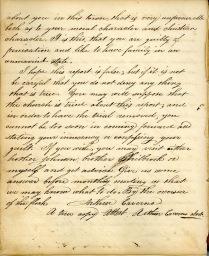 about you in this town, that is very unfavorable
both as to your moral character and christian
character. It is this, that you are guilty of
fornication and like to have family in an
unmarried state.
I hope this report is false; but if it is not
be careful that you do not deny any thing
that is true. You may well suppose that
the church is tried about this report; and
in order to have the trial removed, you
cannot be too soon in coming forward and
stating your innocency or confessing your
guilt. If you wish, you may visit either
brother Johnson, brother or
myself and get advice. Give us some
answer before monthly meeting so that
we may know what to do. By the overseer
of the flock. Arthur Caverno
A true copy Attest Arthur Caverno clerk